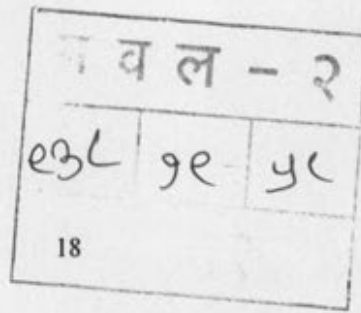 व ल - २
९३८ १९ ५८
18